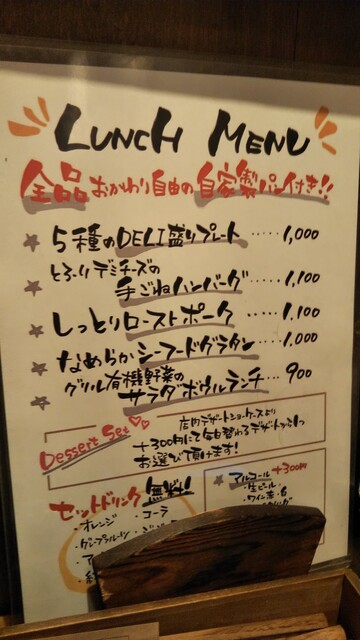 LUNCH MENU
全品おかわり自由の自家製パン付き!!
5種のDELI盛りプレート ····· 1,000
とろ〜りデミチーズの
手ごねハンバーグ ···· 1,100
しっとりローストポーク ····· 1,100
なめらかシーフードグラタン ···· 1,000
グリル有機野菜の
サラダボウルランチ ···· 900
Dessert Set
店内デザートショーケースより
+300円にて毎日替わるデザートから1つ
お選び頂けます!
セットドリンク 無料!
・オレンジ ・コーラ
・グレープフルーツ
アルコール +300円
・生ビール
・ワイン 赤・白